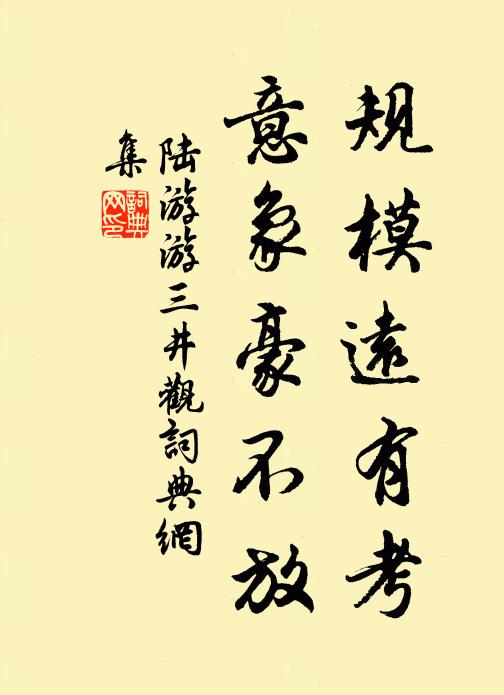 規模遠有考
意象豪不放
陸游游三井觀詞典網
集
詞典
网印